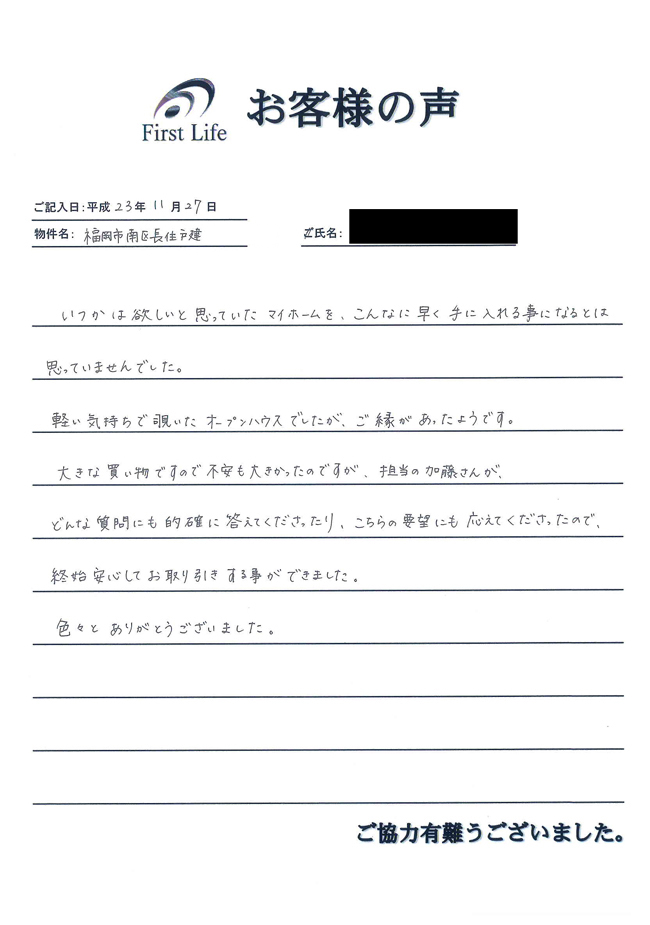 First Life
お客様の声
ご記入日:平成23年11月27日
物件名: 福岡市南区長住戸建
ご氏名:
いつかは欲しいと思っていたマイホームを、こんなに早く手に入れる事になるとは
思っていませんでした。
軽い気持ちで覗いたオープンハウスでしたが、ご縁があったようです。
大きな買い物ですので不安も大きかったのですが、担当の加藤さんが、
どんな質問にも的確に答えてくださったり、こちらの要望にも応えてくださったので、
終始安心してお取り引きする事ができました。
色々とありがとうございました。
ご協力有難うございました。